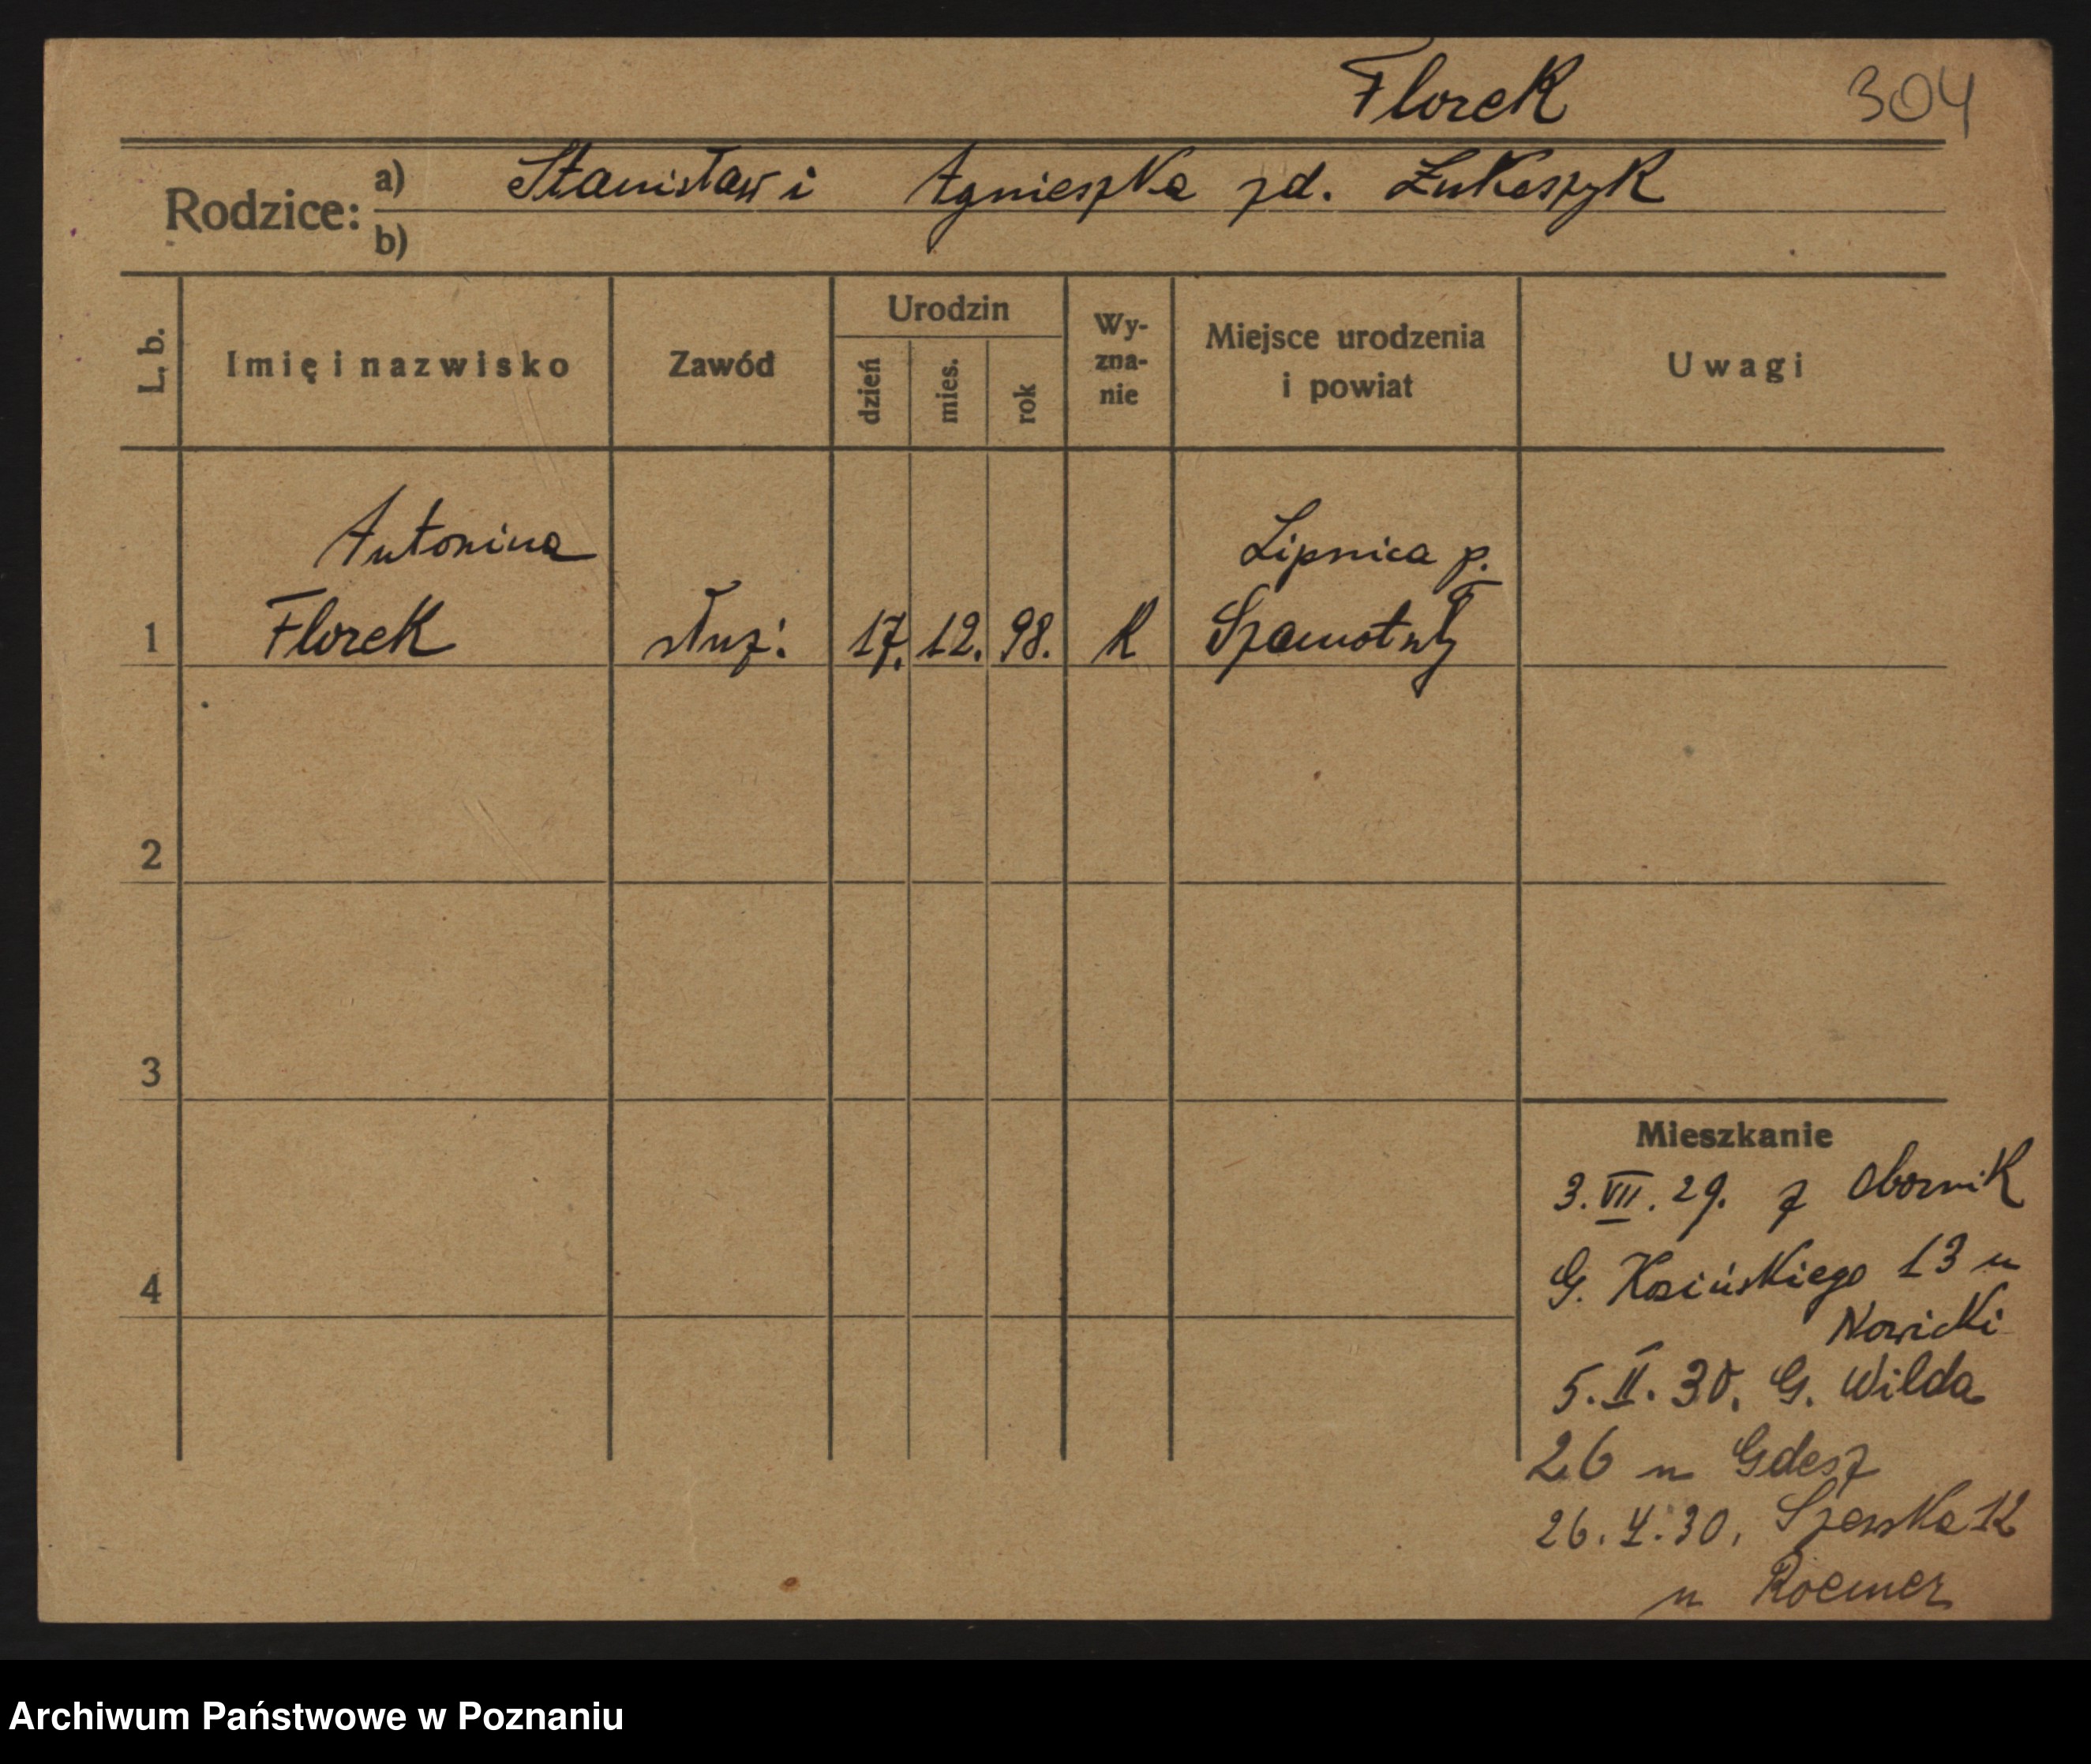 Florek 304
Rodzice: a) Stanisław i Agnieszka zd. Łukaszyk
b)
L. b. Imię i nazwisko Zawód Urodzin dzień mies. rok Wyznanie Miejsce urodzenia i powiat Uwagi
Antonina Lipnica p.
1 Florek służ: 17. 12. 98. K Szamotuły
2
3
Mieszkanie
3. VII. 29. z Obornik
4
G. Kosińskiego 13 u
Nowicki
5. II. 30. G. Wilda
26 u Gdesz
26. 30. Szewska 12
u Roemer
Archiwum Państwowe w Poznaniu